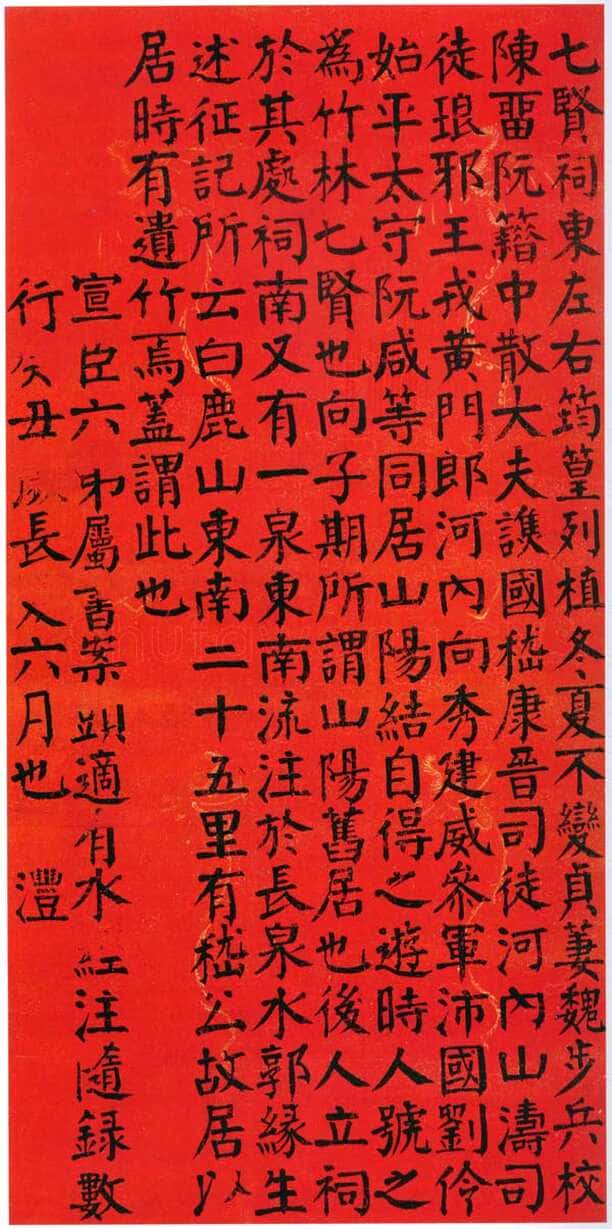 七賢祠東左右筠篁列植冬夏不變貞萋魏步兵校
陳畱阮籍中散大夫譙國嵇康晉司徒河內山濤司
徒琅邪王戎黄門郎河內向秀建威參軍沛國劉伶
始平太守阮咸等同居山陽結自得之遊時人號之
爲竹林七賢也向子期所謂山陽舊居也後人立祠
於其處祠南又有一泉東南流注於長泉水郭緣生
述征記所云白鹿山東南二十五里有嵇公故居以
居時有遺竹焉蓋謂此也
宣臣六弟屬書案頭適有水經注隨録數
行癸丑長六月也 澧